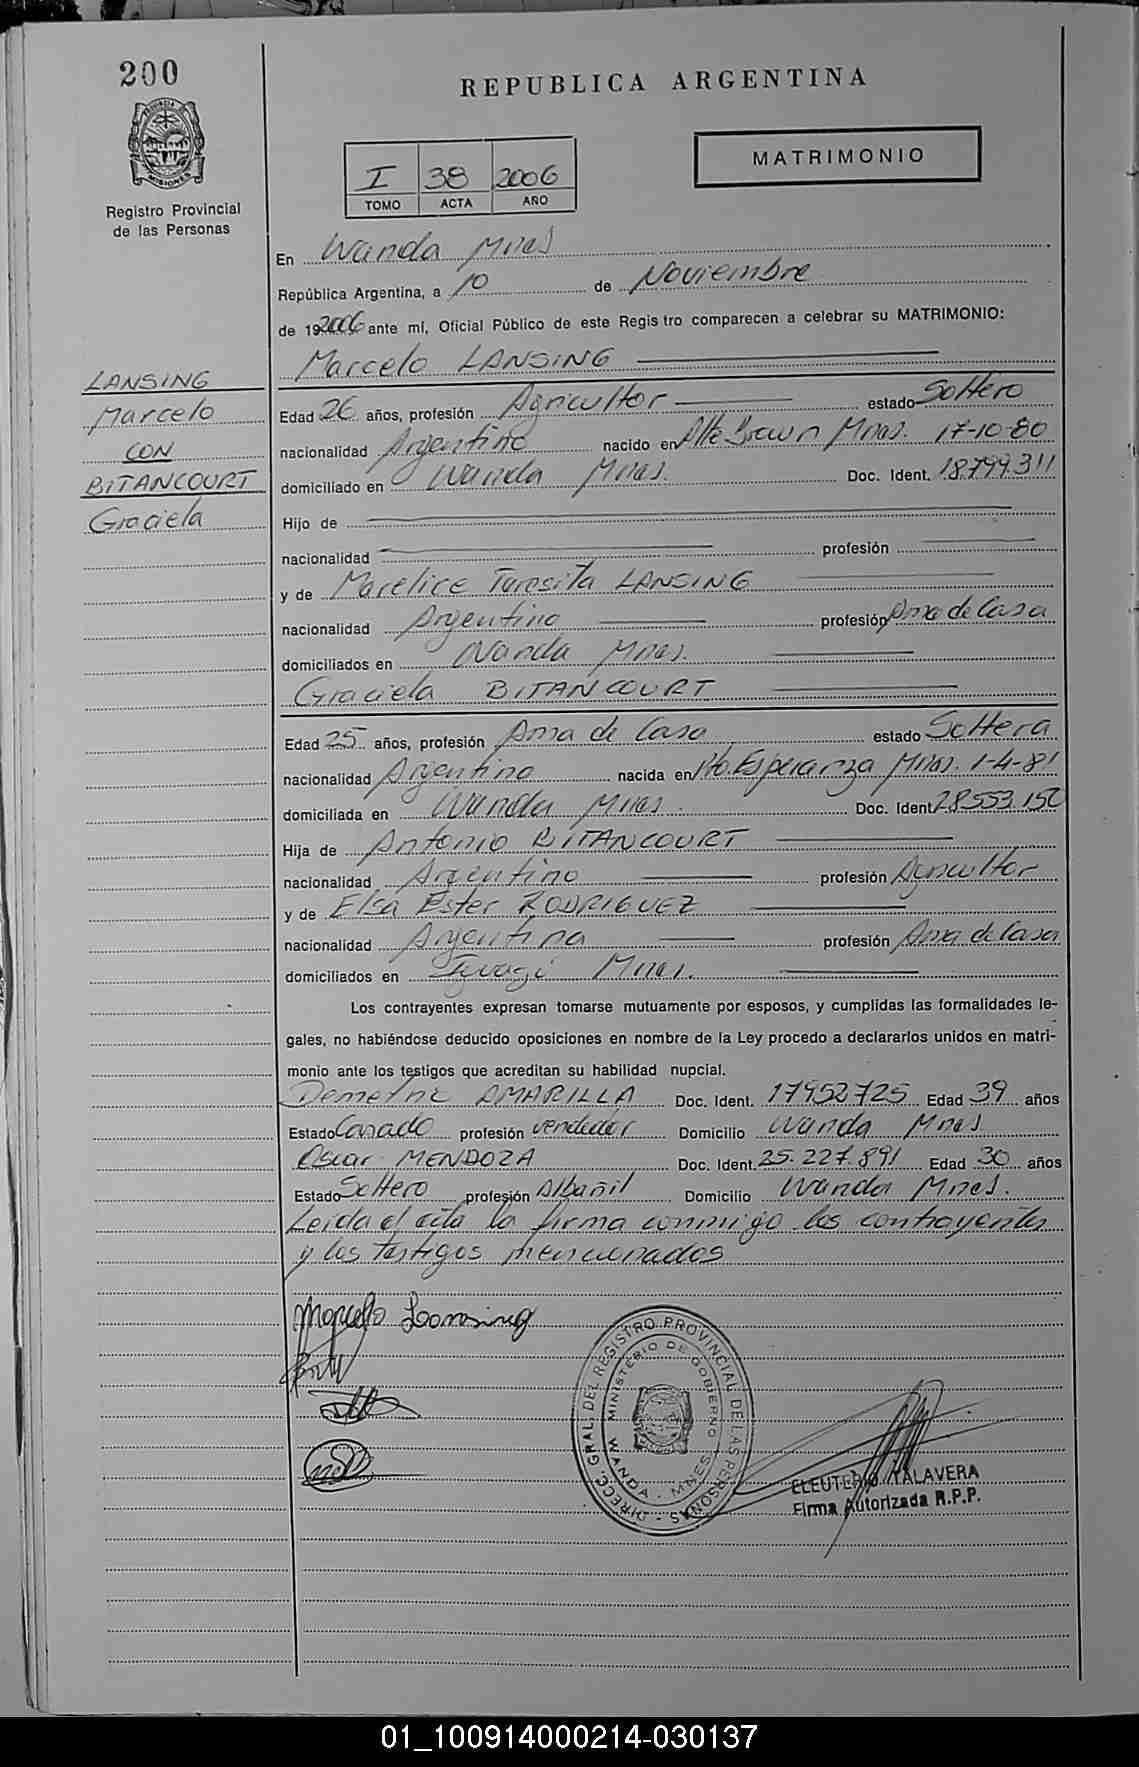 200
REPUBLICA ARGENTINA
PROVINCIA DE MISIONES
Registro Provincial
de las Personas
I 38 2006
TOMO ACTA AÑO
MATRIMONIO
En Wanda Mnes
República Argentina, a 10 de Noviembre
de 192006 ante mí, Oficial Público de este Registro comparecen a celebrar su MATRIMONIO:
Marcelo LANSING
LANSING
Marcelo
CON
BITANCOURT
Graciela
Edad 26 años, profesión Agricultor estado Soltero
nacionalidad Argentino nacido en Alte Brown Mnes. 17-10-80
domiciliado en Wanda Mnes. Doc. Ident. 18.799.311
Hijo de
nacionalidad profesión
y de Marelice Teresita LANSING
nacionalidad Argentina profesión Ama de Casa
domiciliados en Wanda Mnes.
Graciela BITANCOURT
Edad 25 años, profesión Ama de Casa estado Soltera
nacionalidad Argentina nacida en Pto. Esperanza Mnes. 1-4-81
domiciliada en Wanda Mnes. Doc. Ident 28.553.150
Hija de Antonio BITANCOURT
nacionalidad Argentino profesión Agricultor
y de Elsa Ester RODRIGUEZ
nacionalidad Argentina profesión Ama de Casa
domiciliados en Mnes.
Los contrayentes expresan tomarse mutuamente por esposos, y cumplidas las formalidades le-
gales, no habiéndose deducido oposiciones en nombre de la Ley procedo a declararlos unidos en matri-
monio ante los testigos que acreditan su habilidad nupcial.
AMARILLA Doc. Ident. 17952725 Edad 39 años
Estado Casado profesión vendedor Domicilio Wanda Mnes.
Oscar MENDOZA Doc. Ident. 25.227.891 Edad 30 años
Estado Soltero profesión Albañil Domicilio Wanda Mnes.
Leida el acta la firma conmigo los contrayentes
y los testigos mencionados
Marcelo Lansing
DIRECC. GRAL. DEL REGISTRO PROVINCIAL DE LAS PERSONAS
MINISTERIO DE GOBIERNO
WANDA - MNES.
ELEUTERIO TALAVERA
Firma Autorizada R.P.P.
01_100914000214-030137